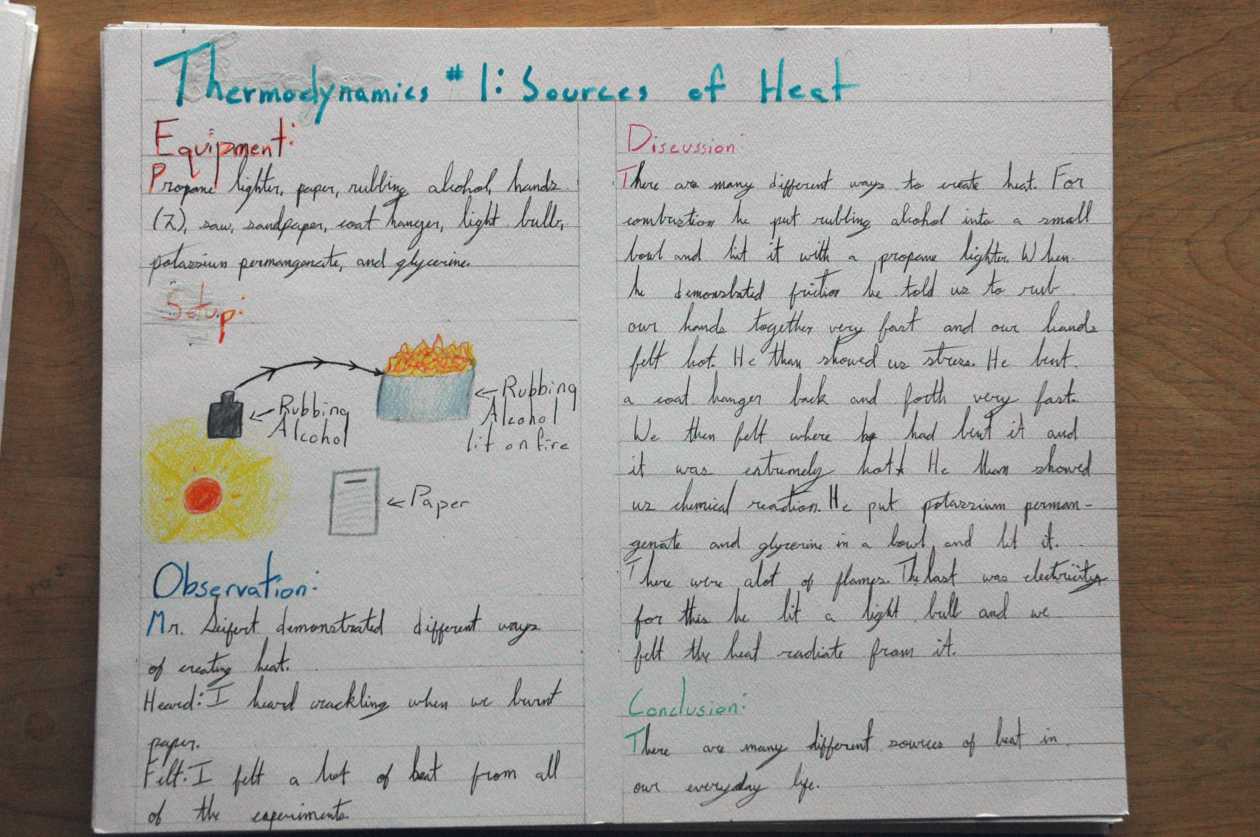 Thermodynamics #1: Sources of Heat
Equipment:
Propane lighter, paper, rubbing alcohol, hands
(2), saw, sandpaper, coat hanger, light bulb,
potassium permanganate, and glycerine.
Setup:
Rubbing
Alcohol
Rubbing
Alcohol
lit on fire
Paper
Observation:
Mr. Seifert demonstrated different ways
of creating heat.
Heard: I heard crackling when we burnt
paper.
Felt: I felt a lot of heat from all
of the experiments.
Discussion:
There are many different ways to create heat. For
combustion he put rubbing alcohol into a small
bowl and lit it with a propane lighter. When
he demonstrated friction he told us to rub
our hands together very fast and our hands
felt hot. He than showed us stress. He bent
a coat hanger back and forth very fast.
We then felt where he had bent it and
it was extremely hot. He than showed
us chemical reaction. He put potassium perman-
genate and glycerine in a bowl and lit it.
There were alot of flames. The last was electricity
for this he lit a light bulb and we
felt the heat radiate from it.
Conclusion:
There are many different sources of heat in
our everyday life.